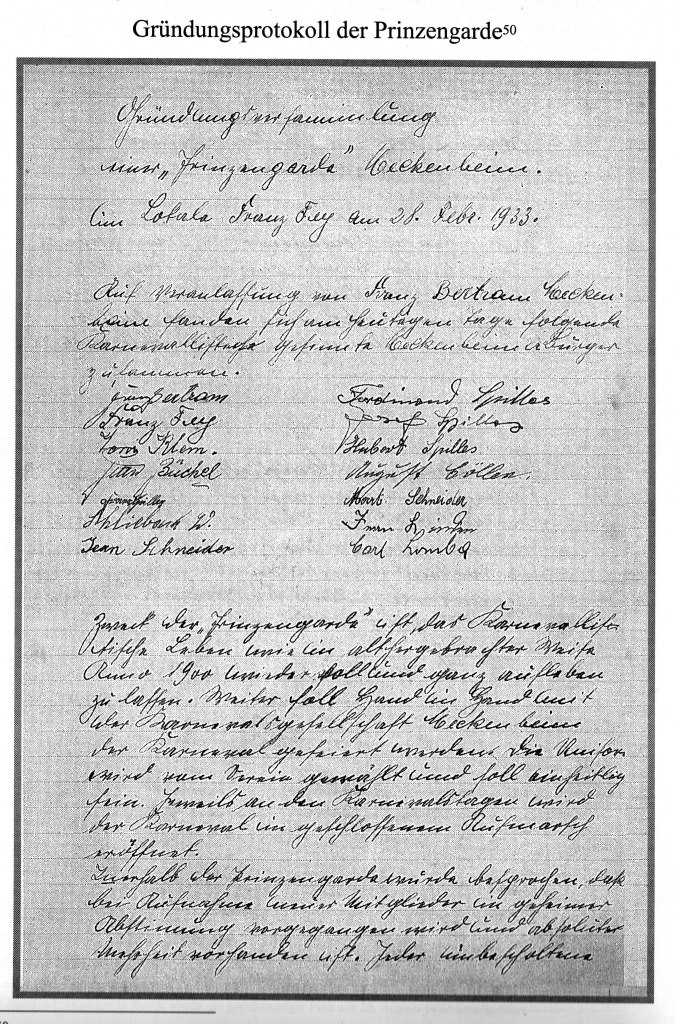 Gründungsprotokoll der Prinzengarde50
Gründungsversammlung
einer „Prinzengarde" Meckenheim.
Im Lokale Franz Fey am 28. Febr. 1933.
Auf Veranlassung von Franz Bertram Mecken-
heim fanden sich am heutigen Tage folgende
Karnevallistische Gesinnte Meckenheimer Bürger
zusammen.
Bertram Ferdinand Spilles
Franz Fey Josef Spilles
Klein. Hubert Spilles
Jean Büchel August Cöllen.
Math. Schneider
Schliebach W.
Jean Schneider Carl Lomba
Zweck der „Prinzengarde" ist, das Karnevallis-
tische Leben wie in althergebrachter Weise
Anno 1900 wieder voll und ganz aufleben
zu lassen. Weiter soll Hand in Hand mit
der Karnevalsgesellschaft Meckenheim
der Karneval gefeiert werden. Die Uniform
wird vom Verein gewählt und soll einheitlig
sein. Jeweils an den Karnevalstagen wird
der Karneval in geschlossenem Aufmarsch
eröffnet.
Inerhalb der Prinzengarde wurde besprochen, daß
bei Aufnahme neuer Mitglieder in geheimer
Abstimung vorgegangen wird und absoluter
Mehrheit vorhanden ist. Jeder unbescholtene